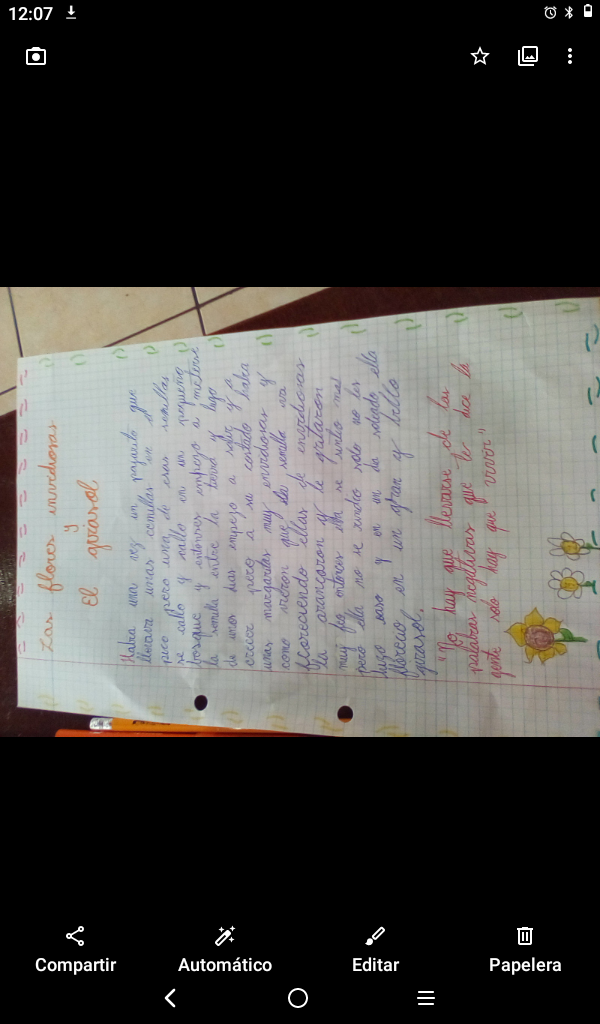 12:07
Las flores invidiosas
y
El girasol
Habia una vez un pajarito que
llevava unas cemillas en el
pico pero una de esas semillas
se callo y callo en un pequeño
bosque y entonses empezo a meterse
la semilla entre la tierra y luego
de unos dias empezo a salir y a
crecer pero a su costado habia
unas margaritas muy invidiosas y
como vieron que la semilla iva
floreciendo ellas de invidiosas
la arancaron y le gritaron
muy feo entonces ella se sintio mal
pero ella no se rindio solo no les
hizo caso y en un dia soleado ella
florecio en un gran y bello
girasol.
"No hay que llevarse de las
palabras negativas que te dice la
gente solo hay que vivir"
Compartir
Automático
Editar
Papelera